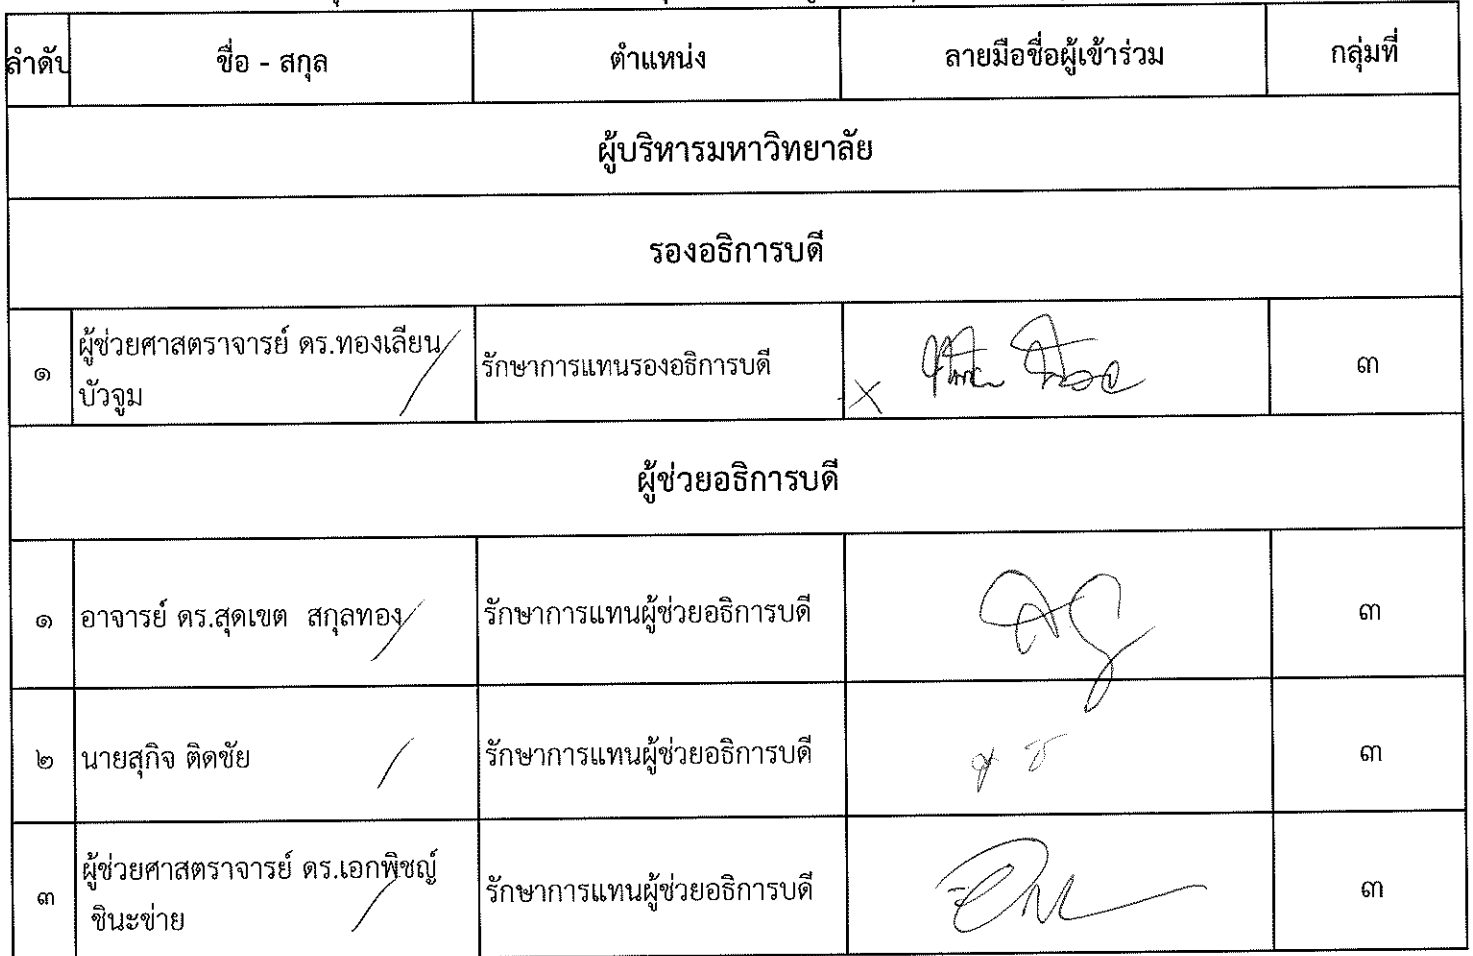 ลำดับ ชื่อ - สกุล ตำแหน่ง ลายมือชื่อผู้เข้าร่วม กลุ่มที่
ผู้บริหารมหาวิทยาลัย
รองอธิการบดี
๑ ผู้ช่วยศาสตราจารย์ ดร.ทองเลียน บัวจูม รักษาการแทนรองอธิการบดี ๓
ผู้ช่วยอธิการบดี
๑ อาจารย์ ดร.สุดเขต สกุลทอง รักษาการแทนผู้ช่วยอธิการบดี ๓
๒ นายสุกิจ ติดชัย รักษาการแทนผู้ช่วยอธิการบดี ๓
๓ ผู้ช่วยศาสตราจารย์ ดร.เอกพิชญ์ ชินะข่าย รักษาการแทนผู้ช่วยอธิการบดี ๓